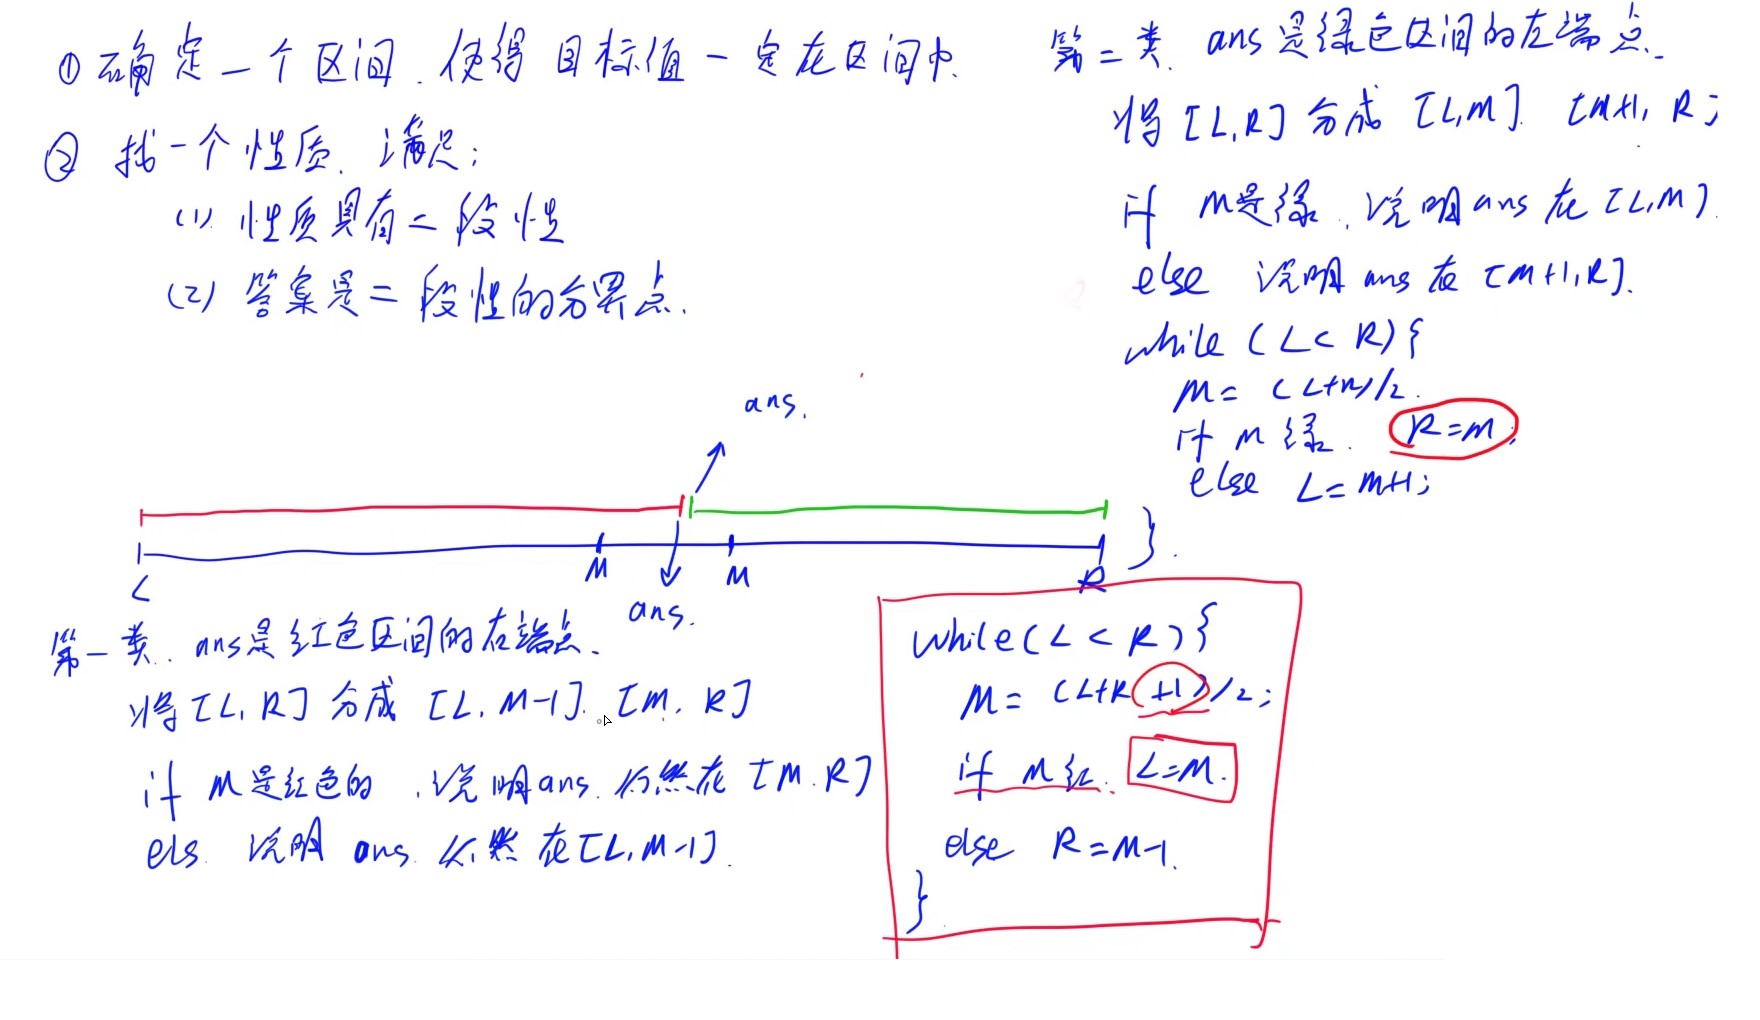 ① 确定一个区间,使得目标值一定在区间中.
② 找一个性质,满足:
(1) 性质具有二段性
(2) 答案是二段性的分界点.
ans.
M
M
L
R
ans.
第一类. ans是红色区间的右端点.
将[L, R] 分成 [L, M-1]. [M, R]
if M是红色的,说明ans仍然在[M, R]
els. 说明 ans 仍然在[L, M-1].
while(L < R) {
M = (L+R+1)/2;
if M红. L=M.
else R=M-1.
}
第二类. ans是绿色区间的左端点.
将[L,R]分成 [L,M]. [M+1, R;
if M是绿,说明ans在[L,M].
else 说明ans在[M+1,R].
while (L< R) {
M= (L+R)/2.
if M绿. R=M;
else L=M+1;
}.